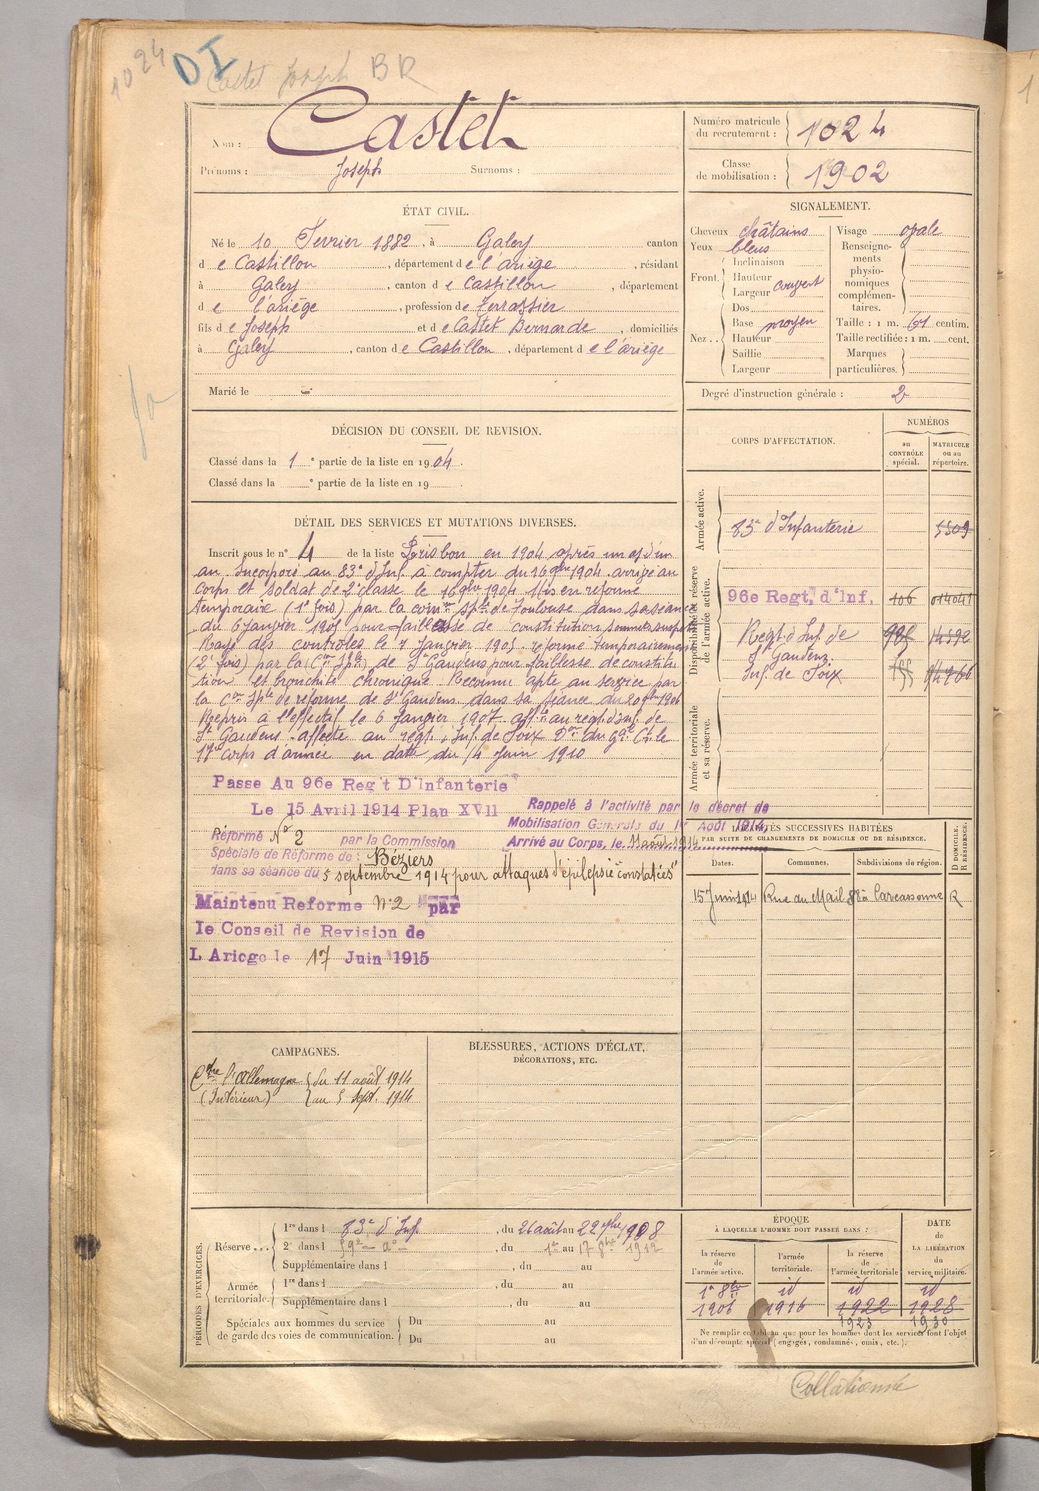 1024 DI
Castet Joseph BR
Nom : Castet
Prénoms : Joseph Surnoms :
Numéro matricule du recrutement : 1024
Classe de mobilisation : 1902
ÉTAT CIVIL.
Né le 10 Fevrier 1882, à Galey canton
de Castillon, département de l'ariège, résidant
à Galey, canton de Castillon, département
de l'ariège, profession de Terrassier
fils de Joseph et de Castet Bernarde, domiciliés
à Galey, canton de Castillon, département de l'ariège
Marié le
SIGNALEMENT.
Cheveux châtains
Yeux bleus
Front. Inclinaison
Hauteur
Largeur couvert
Nez.. Dos
Base moyen
Hauteur
Saillie
Largeur
Visage ovale
Renseignements physionomiques complémentaires.
Taille : 1 m. 61 centim.
Taille rectifiée : 1 m. cent.
Marques particulières.
Degré d'instruction générale : 2
DÉCISION DU CONSEIL DE REVISION.
Classé dans la 1e partie de la liste en 1904.
Classé dans la e partie de la liste en 19
DÉTAIL DES SERVICES ET MUTATIONS DIVERSES.
Inscrit sous le n° 4 de la liste en 1904 après un aj. d'un
an Incorporé au 83e d'Inf. à compter du 16 9bre 1904. arrivé au
corps et soldat de 2e classe le 16 9bre 1904. Mis en reforme
temporaire (1e fois) par la comon Sple de Toulouse dans sa séance
du 6 Janvier 1905 pour faiblesse de constitution
Rayé des contrôles le 7 Janvier 1905. réformé temporairement
(2e fois) par la Con Sple de St Gaudens pour faiblesse de constitu
tion et bronchite chronique. Reconnu apte au service par
la Con Sple de réforme de St Gaudens dans sa séance du 20 1906
Repris à l'effectif le 6 Janvier 1907. aff. au regt d'inf. de
St Gaudens. affecté au régt. d'Inf. de Foix Don du Gal Ct le
17e corps d'armée en date du 14 Juin 1910
Passe Au 96e Reg't D'Infanterie
Le 15 Avril 1914 Plan XVII
Rappelé à l'activité par le décret de
Mobilisation Générale du 1er Août 1914,
Arrivé au Corps, le 11 août 1914
Réformé N° 2 par la Commission
Spéciale de Réforme de : Béziers
dans sa séance du 5 septembre 1914 pour attaques d'épilepsie constatées"
Maintenu Reforme N°2 par
le Conseil de Revision de
L Ariege le 17 Juin 1915
CORPS D'AFFECTATION.
NUMÉROS
au CONTRÔLE spécial.
MATRICULE ou au répertoire.
Armée active.
83e d'Infanterie 5509
Disponibilité et réserve de l'armée active.
96e Regt, d'Inf. 106 014041
Regt d'Inf de St Gaudens 986 14592
Inf. de Foix 14266
Armée territoriale et sa réserve.
LOCALITÉS SUCCESSIVES HABITÉES
PAR SUITE DE CHANGEMENTS DE DOMICILE OU DE RÉSIDENCE.
D DOMICILE. R RÉSIDENCE.
Dates. Communes. Subdivisions de région.
15 Juin 1914 Rue du Mail 88 à Carcassonne R
CAMPAGNES.
Ctre l'Allemagne du 11 août 1914
(Intérieur) au 5 sept. 1914
BLESSURES, ACTIONS D'ÉCLAT,
DÉCORATIONS, ETC.
PÉRIODES D'EXERCICES.
Réserve... 1re dans l 83e d'Inf., du 26 août au 22 7bre 1908
2e dans l 59e - do -, du 1er au 17 8bre 1912
Supplémentaire dans l, du au
Armée territoriale. 1re dans l, du au
Supplémentaire dans l, du au
Spéciales aux hommes du service de garde des voies de communication. Du au
Du au
ÉPOQUE
À LAQUELLE L'HOMME DOIT PASSER DANS :
la réserve de l'armée active.
l'armée territoriale.
la réserve de l'armée territoriale
DATE DE LA LIBÉRATION du service militaire.
1er 8bre id id id
1906 1916 1922 1928
1923 1930
Ne remplir ce tableau que pour les hommes dont les services font l'objet
d'un décompte spécial (engagés, condamnés, omis, etc.).
Collationné